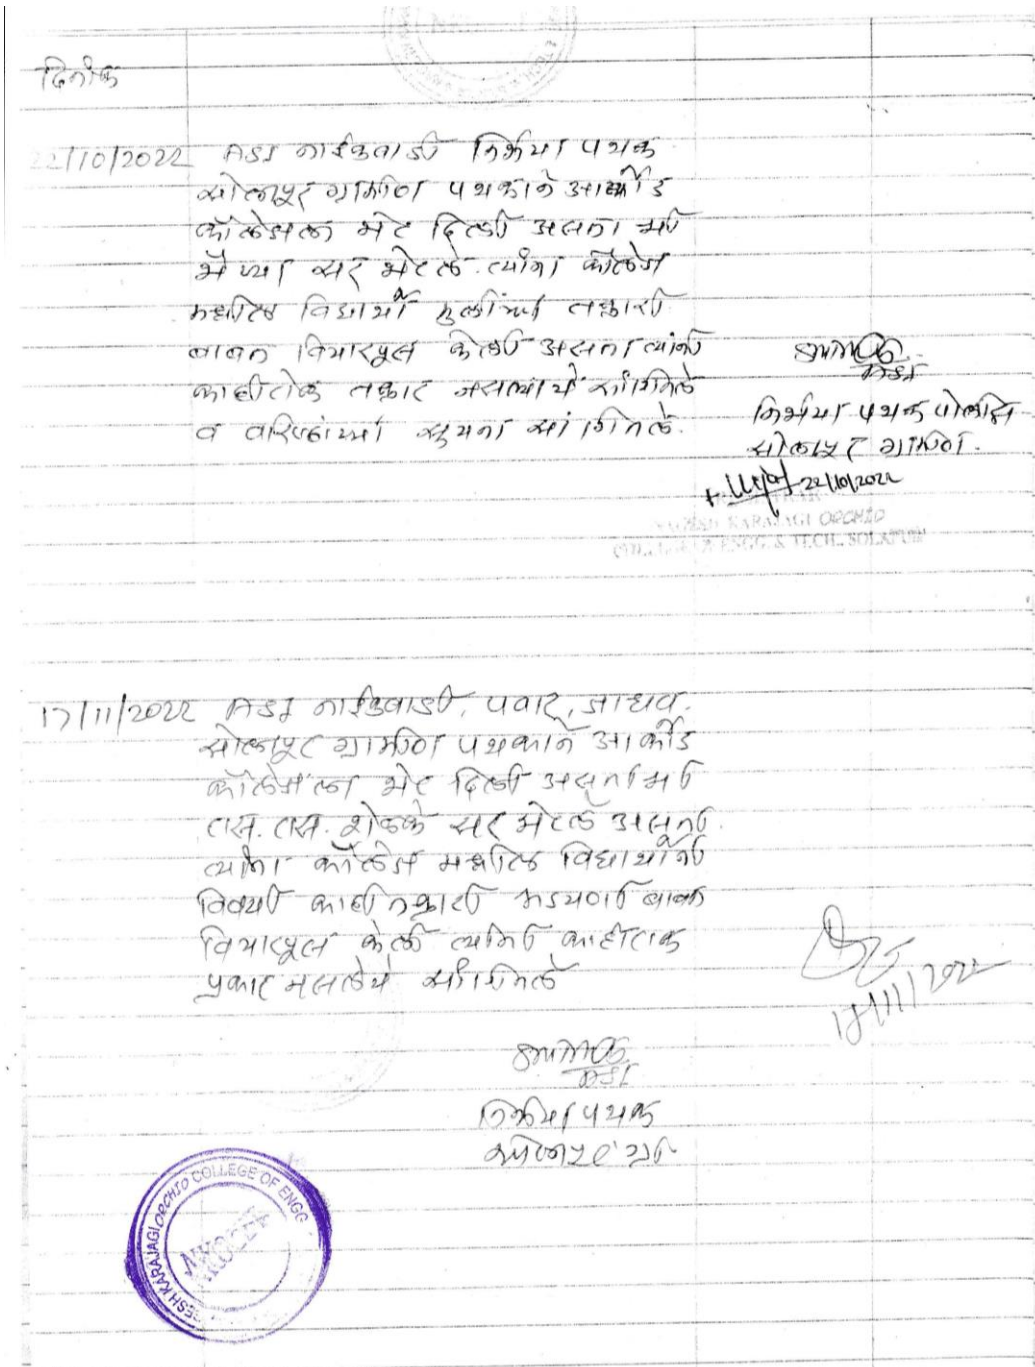 दिनांक
22/10/2022 ASI नाईकवाडी निर्भया पथक
सोलापूर ग्रामीण पथकाने आर्कीड
कॉलेजला भेट दिली असता मी
भैय्या सर भेटले. त्यांना कॉलेज
मधील विद्यार्थी मुलींच्या तक्रारी
बाबत विचारपूस केली असता त्यांनी
काहीएक तक्रार नसल्याचे सांगितले
व वरिष्ठांच्या सूचना सांगितले.
ASI
निर्भया पथक पोलीस
सोलापूर ग्रामीण.
22/10/2022
KARAJAGI ORCHID
ENGG. & TECH., SOLAPUR
17/11/2022 ASI नाईकवाडी, पवार, जाधव.
सोलापूर ग्रामीण पथकाने आर्कीड
कॉलेजला भेट दिली असता मी
एस. एस. शेळके सर भेटले असून
त्यांना कॉलेज मधील विद्यार्थीनी
विषयी काही तक्रारी अडचणी बाबत
विचारपूस केली त्यांनी काहीएक
प्रकार नसलेचे सांगितले
ASI
निर्भया पथक
सोलापूर ग्रा.
KARAJAGI ORCHID COLLEGE OF ENGG